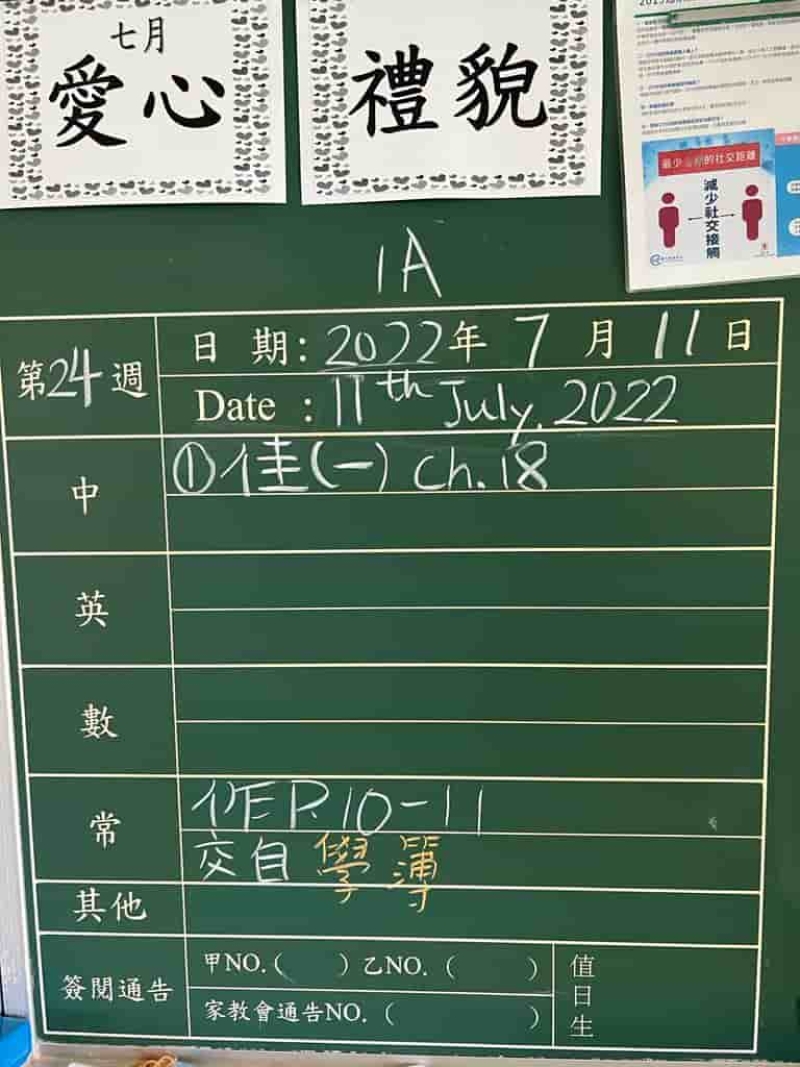 七月
愛心
禮貌
最少
的社交距離
減少社交接觸
1A
第24週
日 期：2022年 7 月 11 日
Date ：11th July, 2022
中
①佳(一) Ch.18
英
數
常
作E P.10-11
交自學簿
其他
簽閱通告
甲NO.( ) 乙NO. ( )
家教會通告NO. ( )
值日生